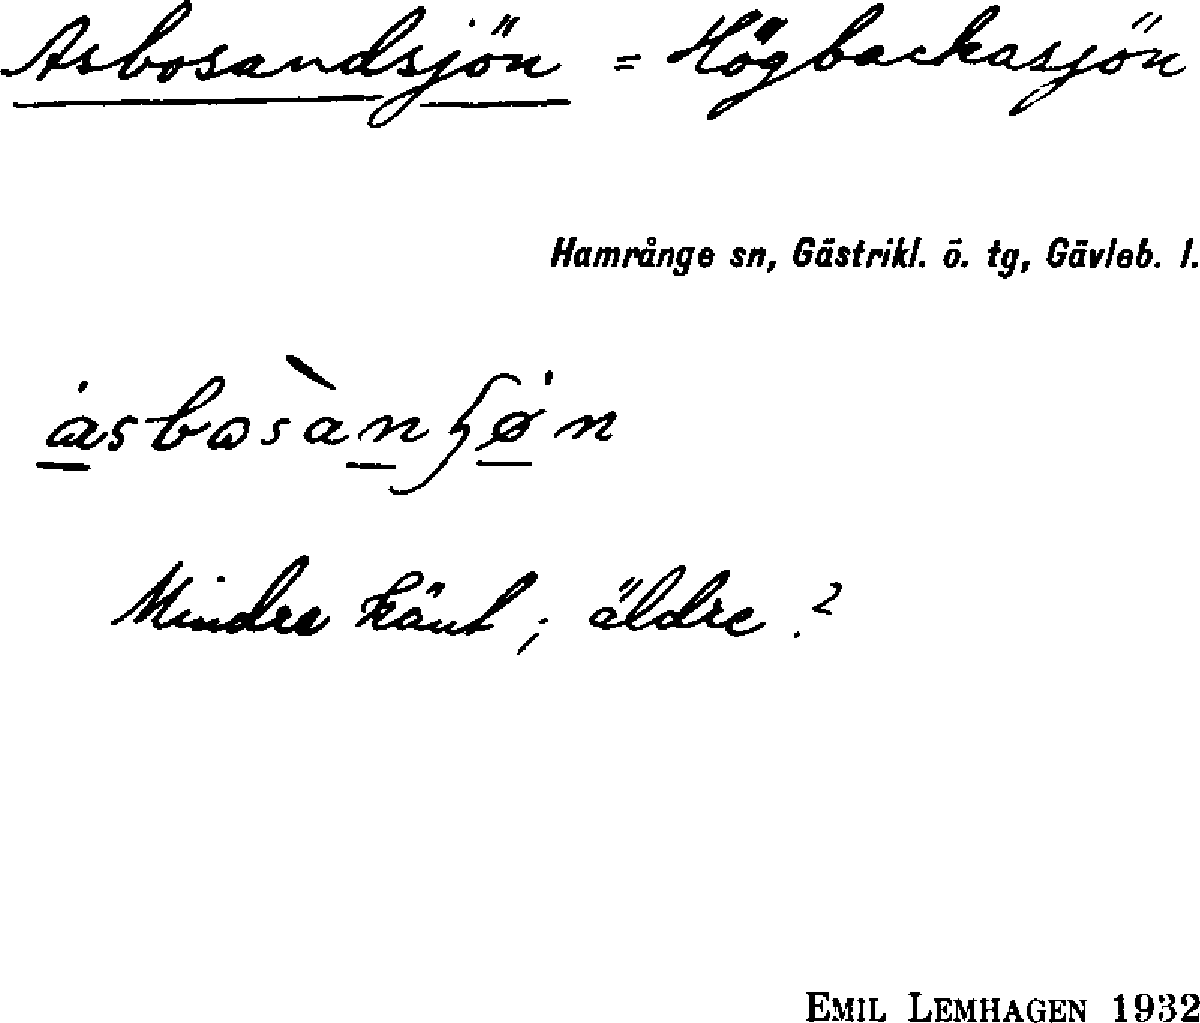 Asbosandsjön = Högbackasjön
Hamrånge sn, Gästrikl. ö. tg, Gävleb. l.
Mindre känt; äldre?
EMIL LEMHAGEN 1932